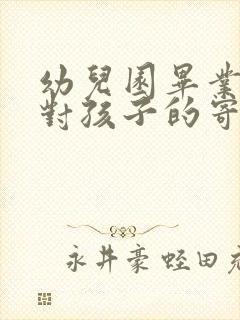 幼兒園畢業
對孩子的寄
永井豪蛭田充